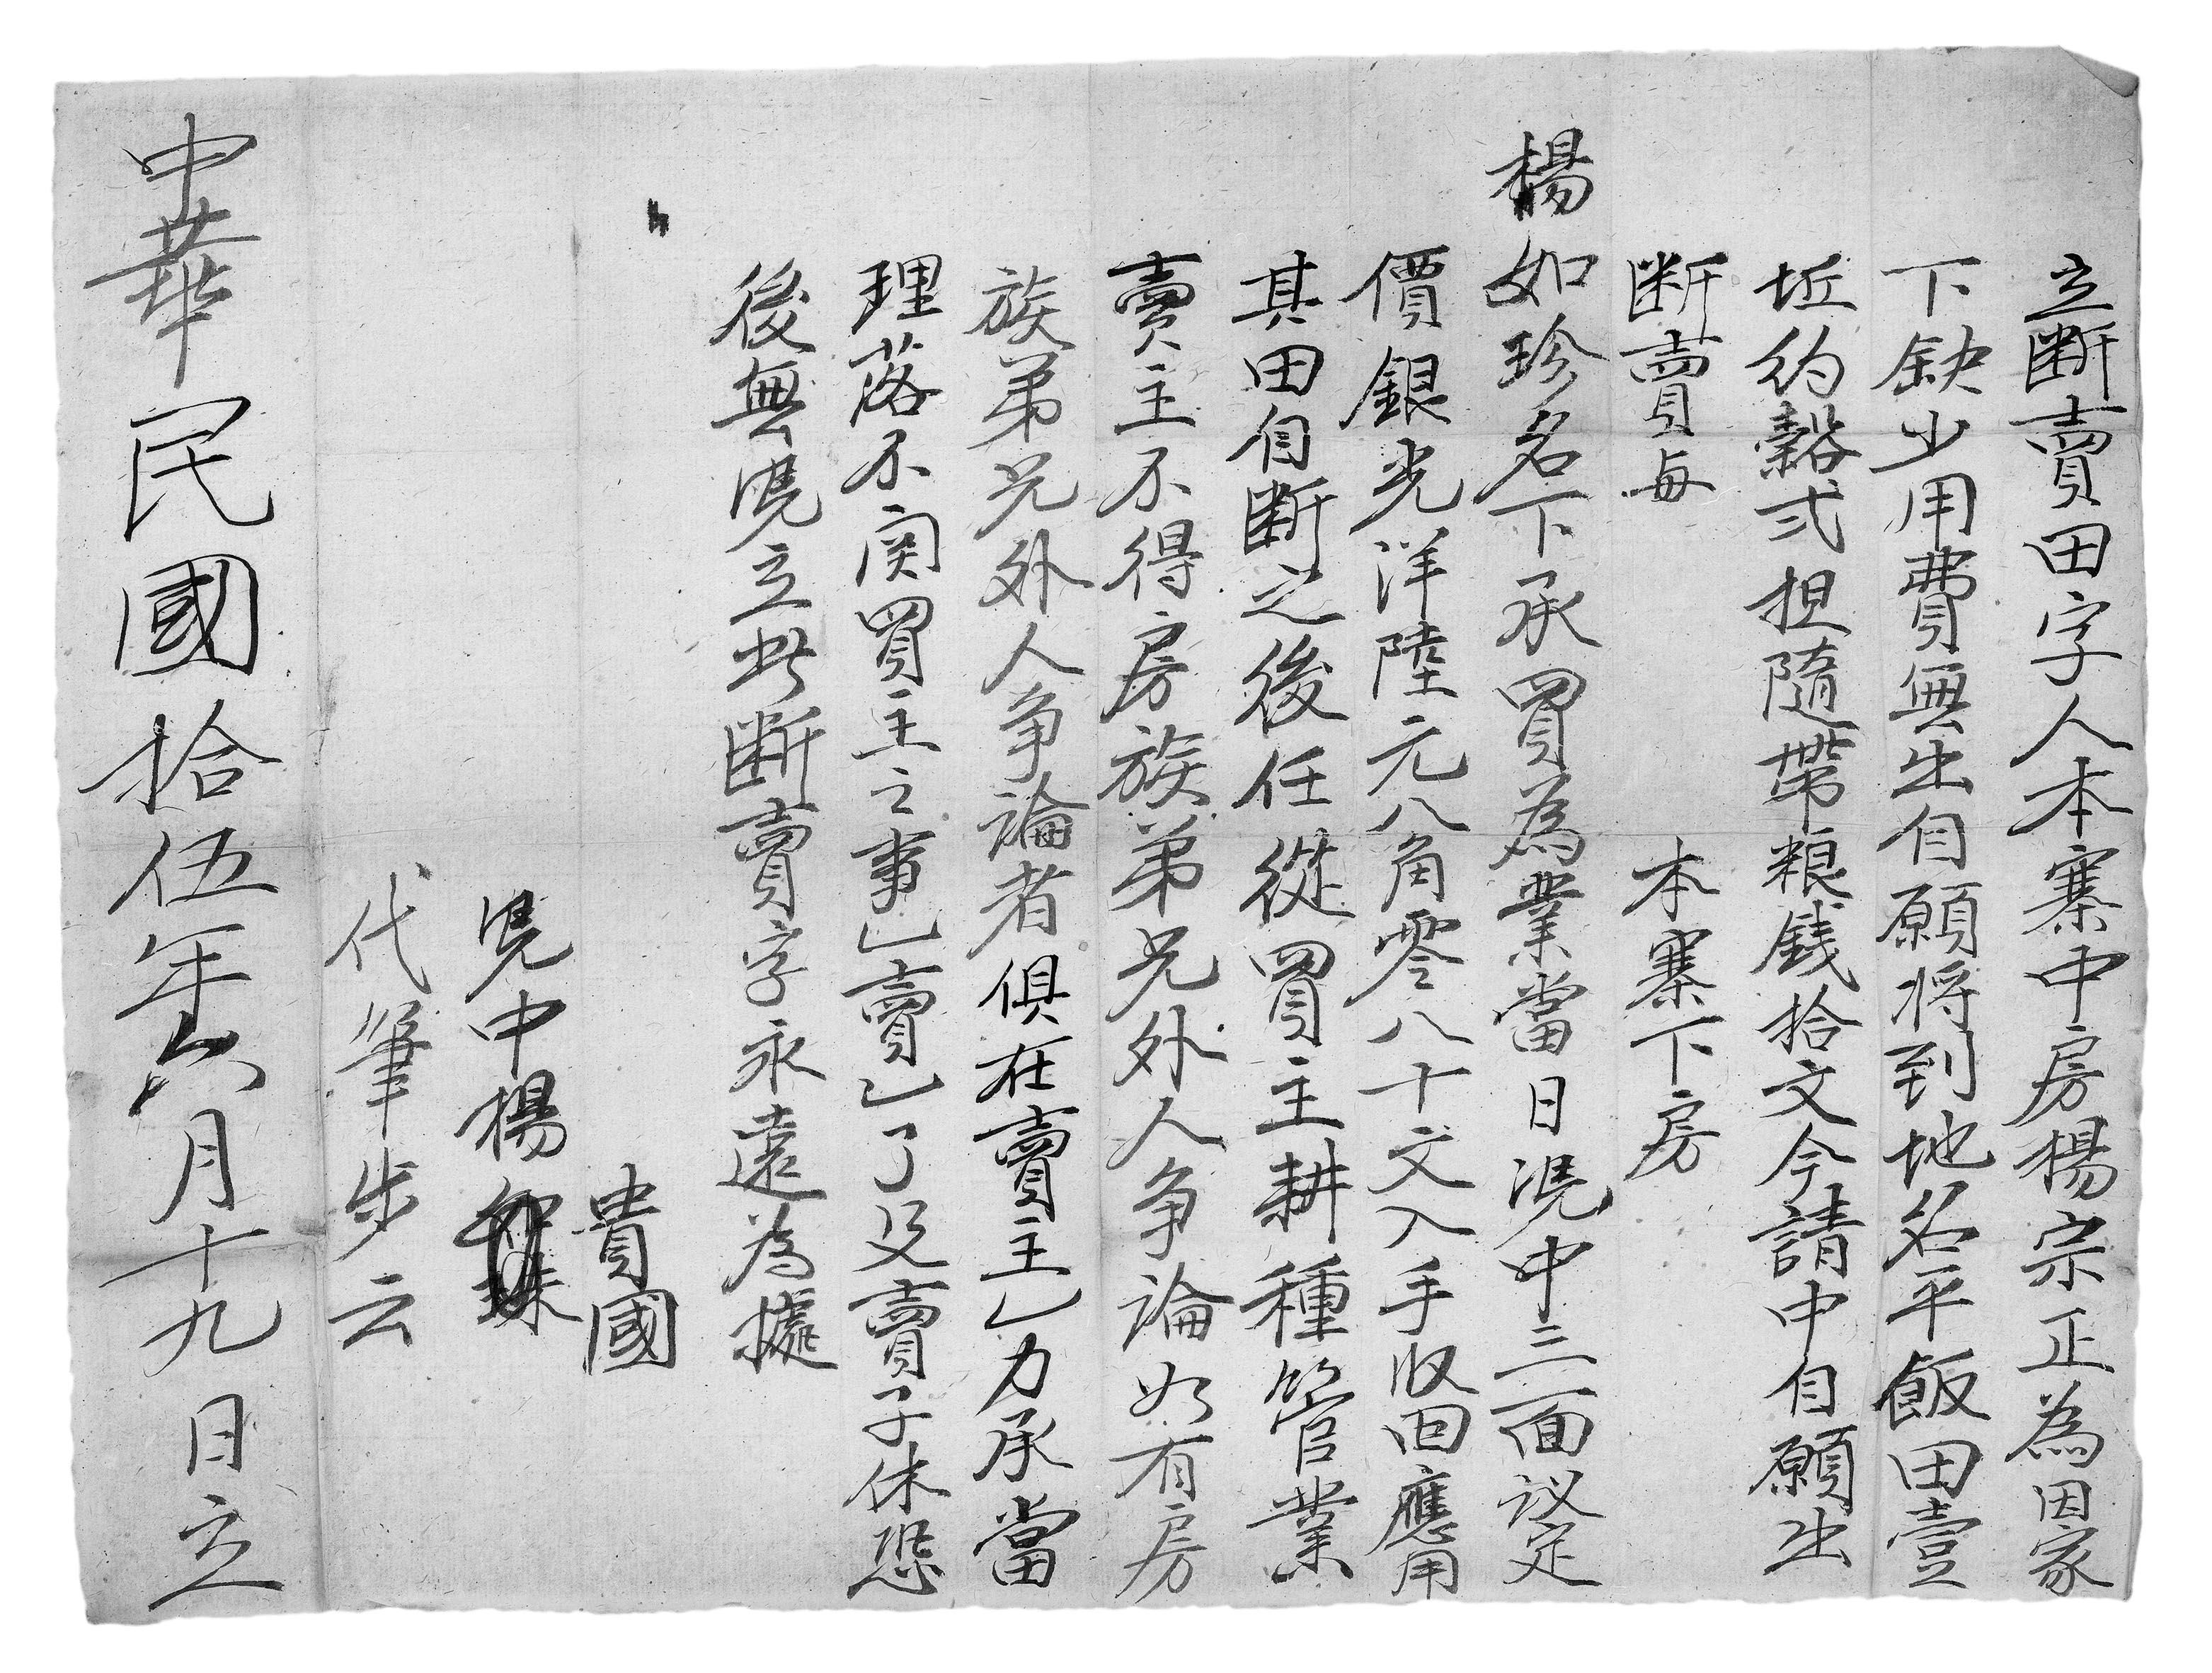 立断賣田字人本寨中房楊宗正為因家
下缺少用費無出自願将到地名平飯田壹
坵約穀弍担隨帶粮銭拾文今請中自願出
断賣與 本寨下房
楊如珍名下承買為業當日凴中三面议定
價銀光洋陸元八角零八十文入手收回應用
其田自断之後任從買主耕種管業
賣主不得房族弟兄外人争論如有房
族弟兄外人争論者俱在賣主乚力承當
理落不関買主之事乚賣乚了父賣子休恐
後無凴立此断賣字永遠為據
貴國
凴中楊
代筆步云
中華民國拾伍年六月十九日立